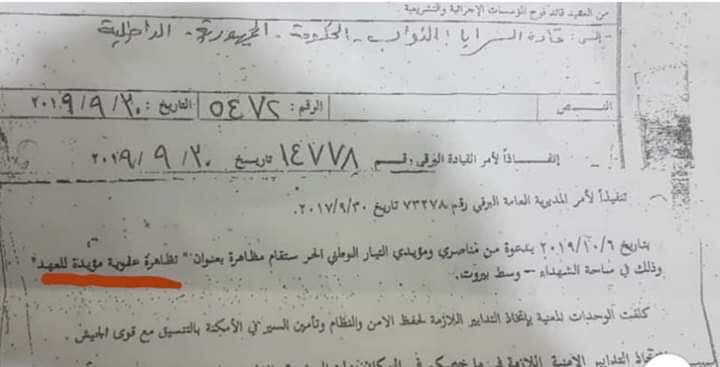 من العقيد قائد فوج المؤسسات الإجرائية والتشريعية
إلى: قادة السرايا: النواب - الحكومة - الجمهورية - الداخلية
النص الرقم: ٥٤٧٢ التاريخ: ٢٠١٩/٩/٣٠
إنفاذاً لأمر القيادة البرقي رقم ١٤٧٧٨ تاريخ ٢٠١٩/٩/٣٠
تنفيذاً لأمر المديرية العامة البرقي رقم ٧٣٢٧٨ تاريخ ٢٠١٧/٩/٣٠.
بتاريخ ٢٠١٩/١٠/٦ بدعوة من مناصري ومؤيدي التيار الوطني الحر ستقام مظاهرة بعنوان " تظاهرة عفوية مؤيدة للعهد "
وذلك في ساحة الشهداء – وسط بيروت.
كلفت الوحدات المعنية بإتخاذ التدابير اللازمة لحفظ الامن والنظام وتأمين السير في الأمكنة بالتنسيق مع قوى الجيش.
التدابير الامنية اللازمة في ما خصكم في